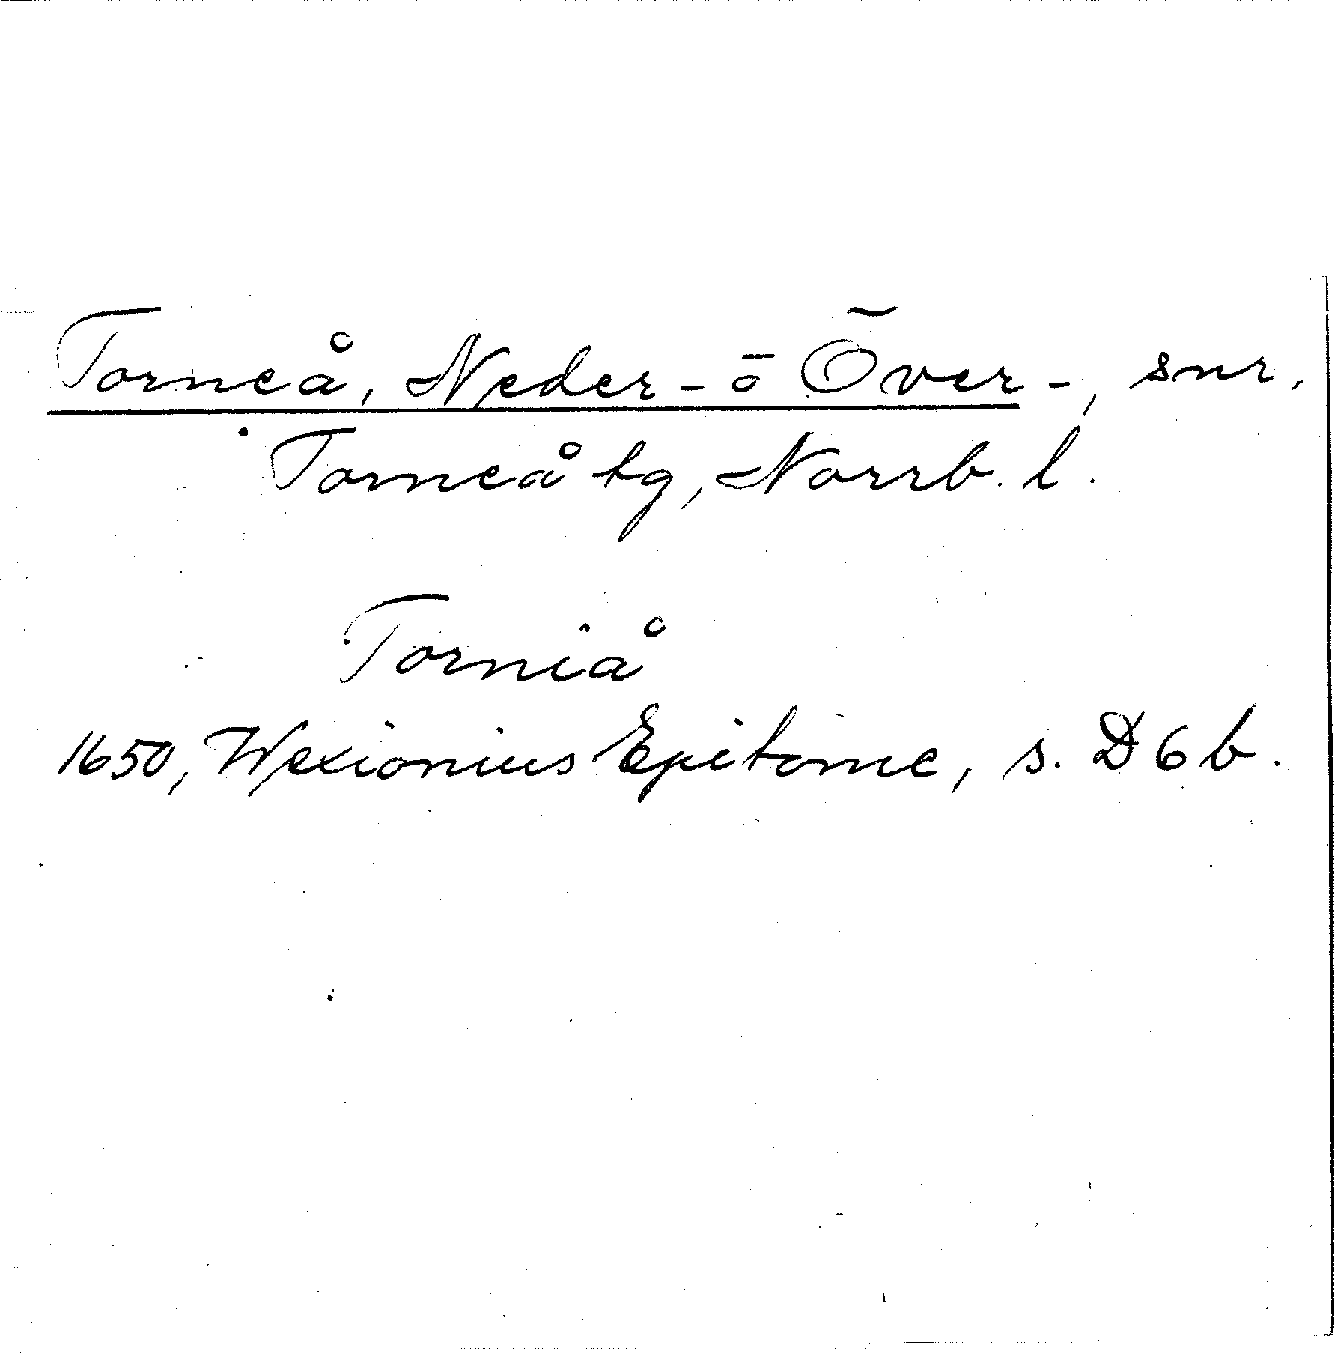 Torneå, Neder- ō Över-, snr.
Torneå tg, Norrb. l.
Torniå
1650, Wexionius Epitome, s. D6b.